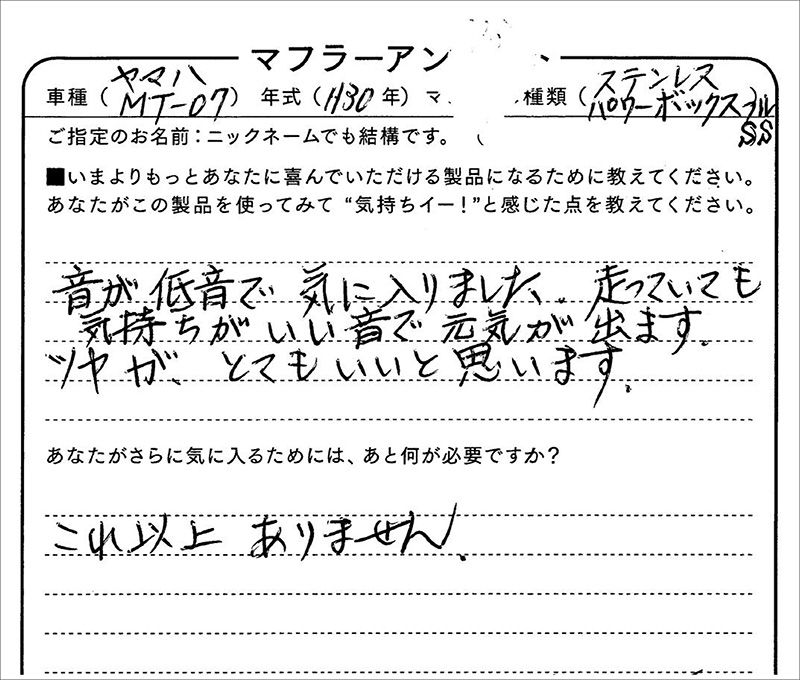 マフラーアン
車種（ヤマハ MT-07）年式（H30年）マ 種類（ステンレス パワーボックスフル SS
ご指定のお名前：ニックネームでも結構です。（
■いまよりもっとあなたに喜んでいただける製品になるために教えてください。
あなたがこの製品を使ってみて“気持ちイー！”と感じた点を教えてください。
音が低音で 気に入りました。走っていても
気持ちがいい音で元気が出ます。
ツヤが、とてもいいと思います。
あなたがさらに気に入るためには、あと何が必要ですか？
これ以上 ありません。